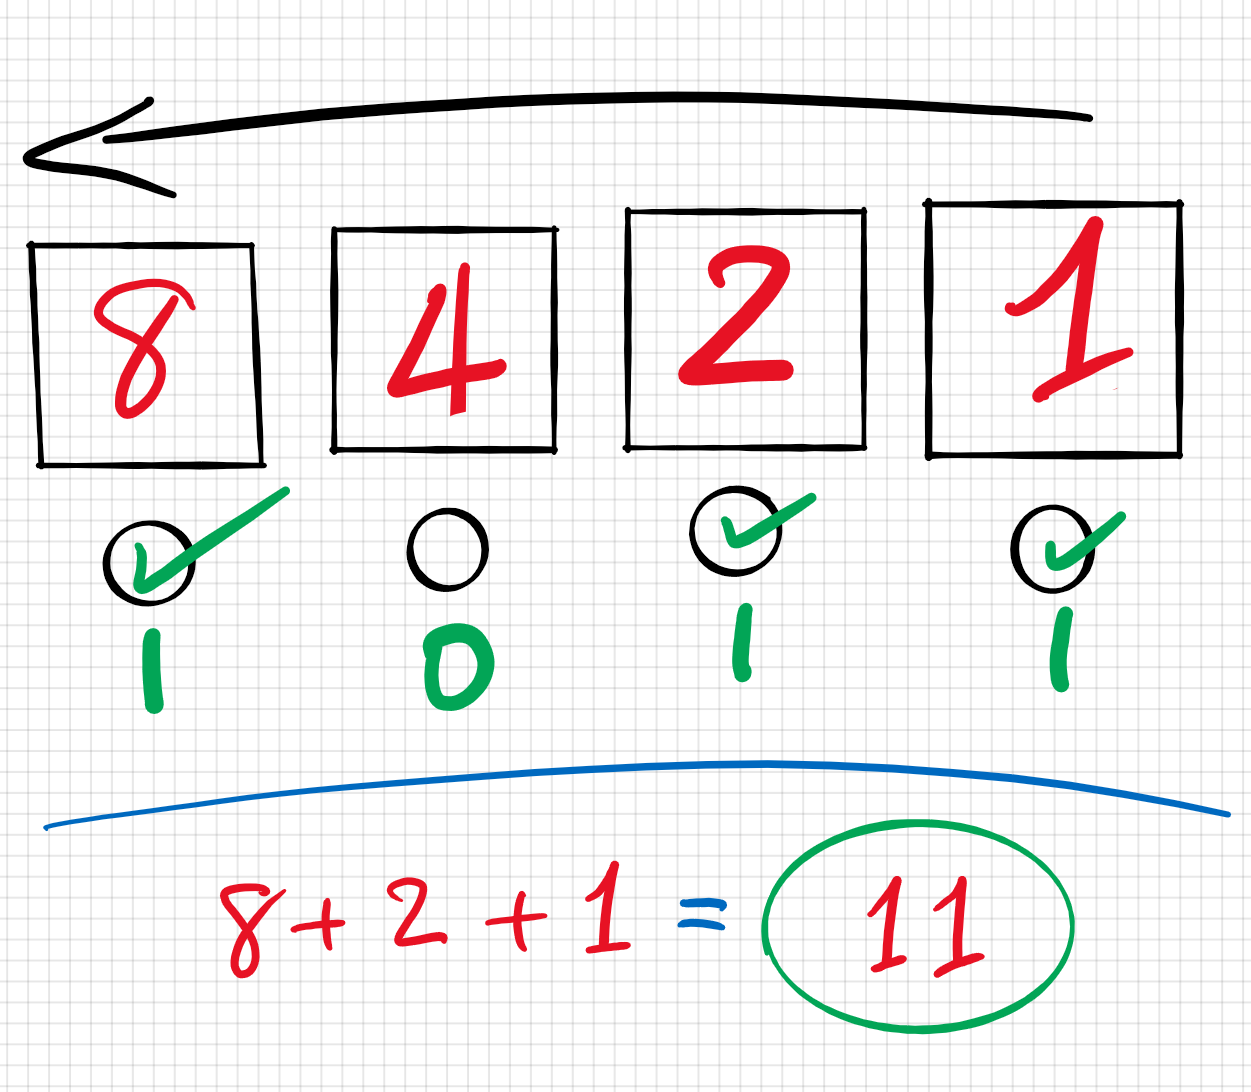 8 4 2 1
1 0 1 1
8 + 2 + 1 = 11